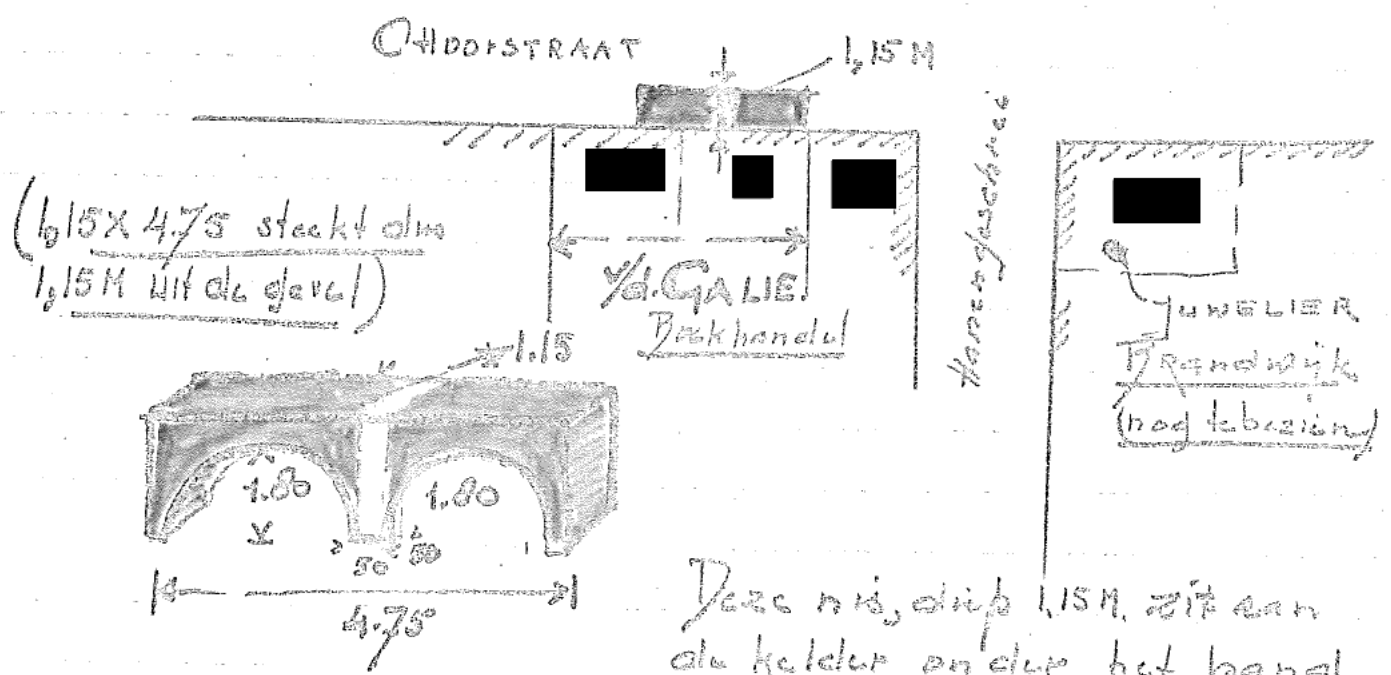 HOOFSTRAAT
1,15 M
(1,15 X 4.75 steekt dus
1,15 M uit de gevel)
v/d. GALIE.
Boekhandel
JUWELIER
Brandwijk
(nog te bezien)
1.15
1.80 1.80
50 50
4.75
Deze nis, diep 1,15 M. zit aan
de kelder onder het pand